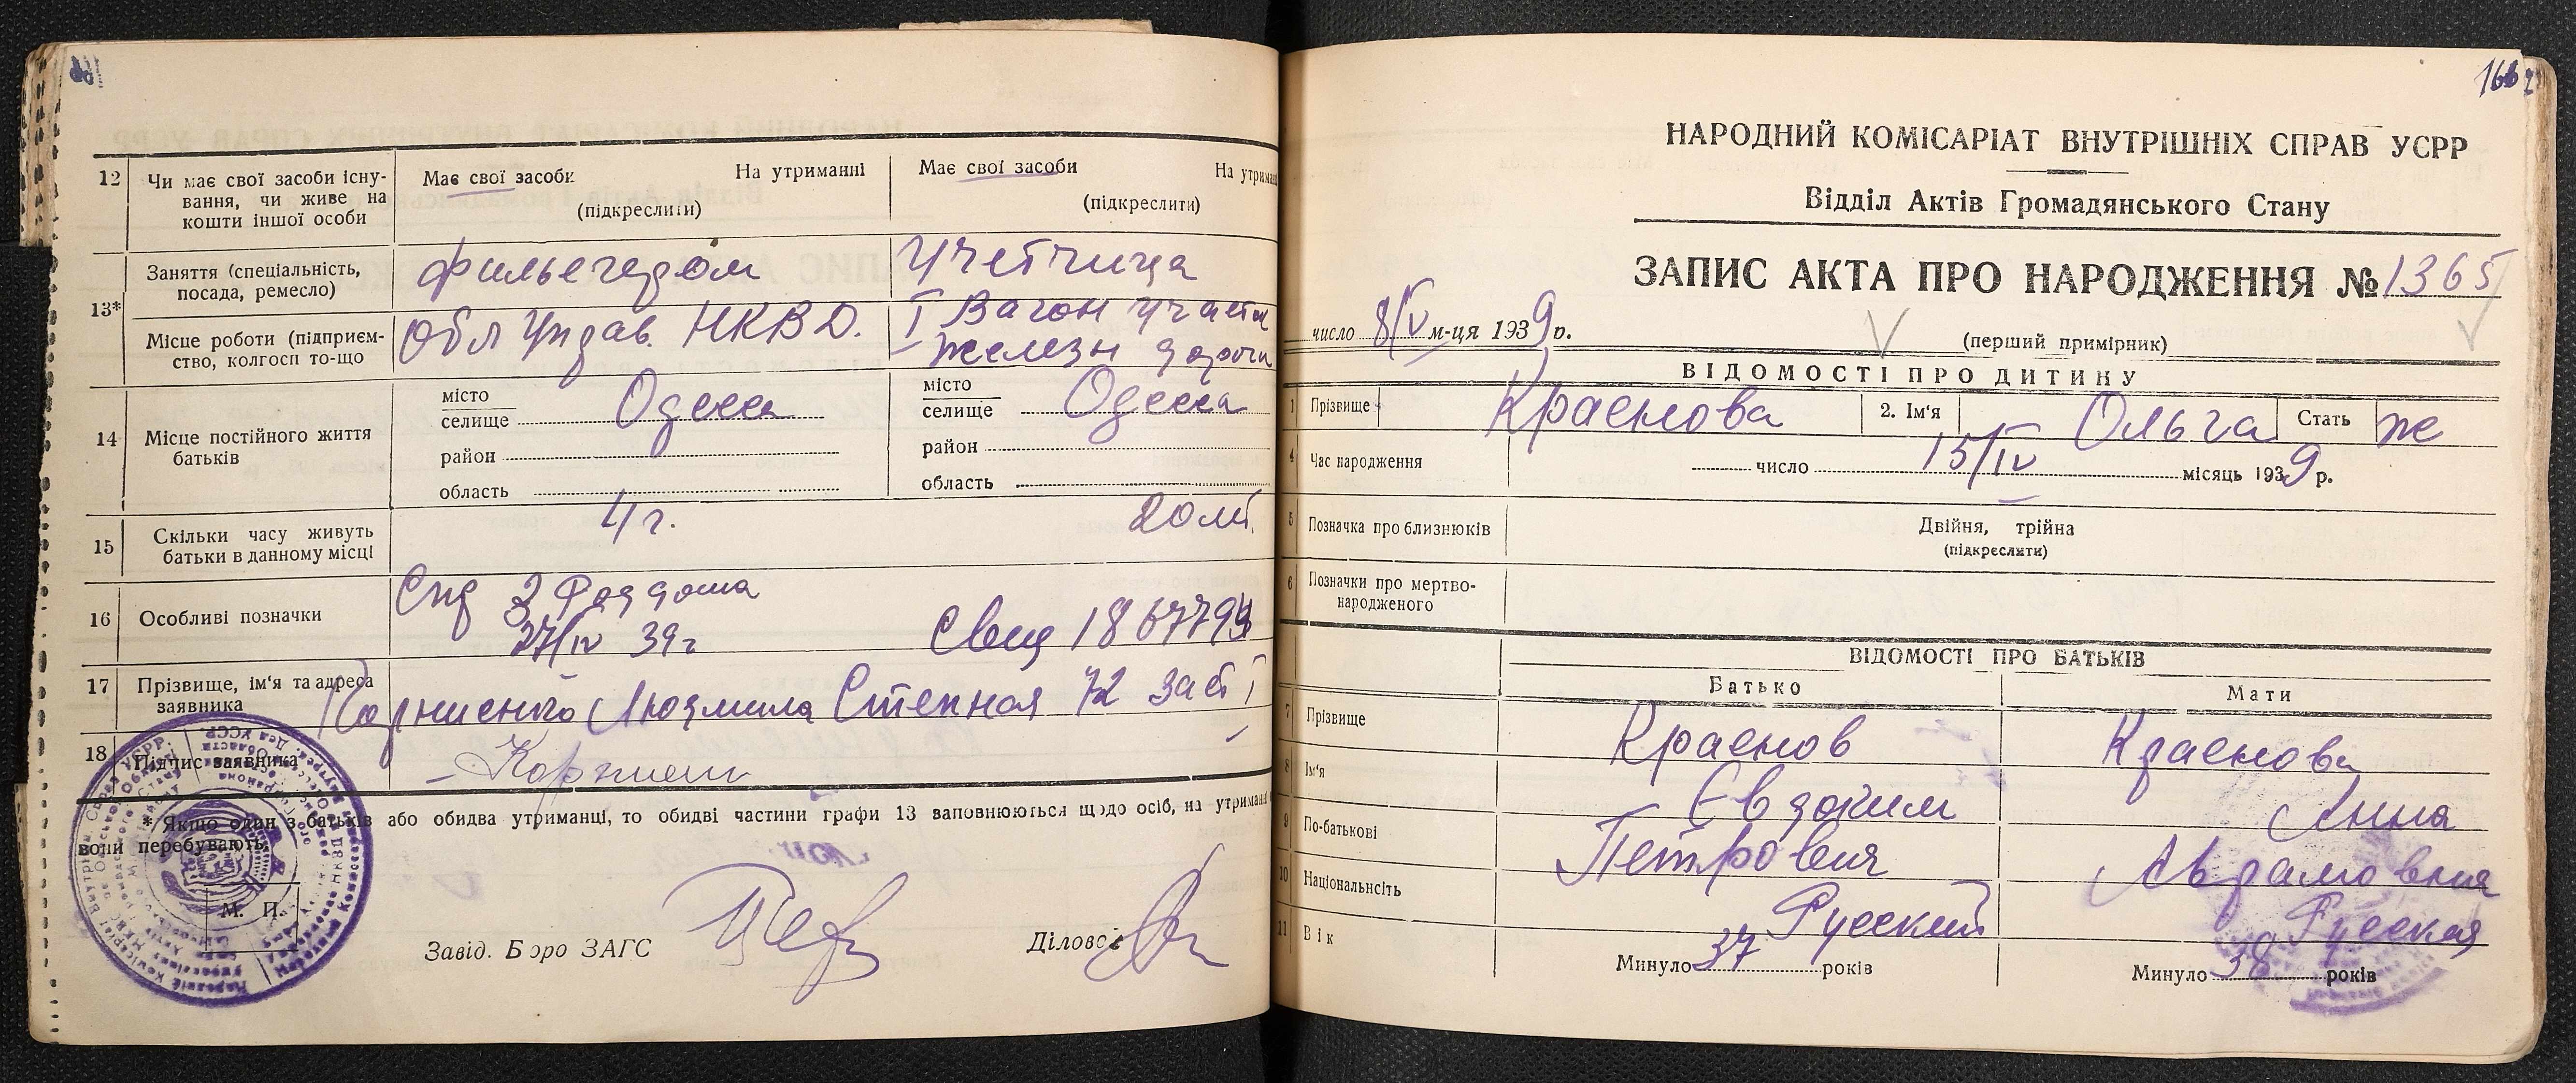 12
Чи має свої засоби існу-
вання, чи живе на
кошти іншої особи
Має свої засоби
На утриманні
(підкреслити)
Має свої засоби
На утриман
(підкреслити)
13*
Заняття (спеціальність,
посада, ремесло)
фельегедом
Учетчица
Місце роботи (підприєм-
ство, колгосп то-що
Обл Управ. НКВД.
I Вагон участок
железн дороги
14
Місце постійного життя
батьків
місто
селище Одесса
район
область
місто
селище Одесса
район
область
15
Скільки часу живуть
батьки в данному місці
4 г.
20 лет.
16
Особливі позначки
Спр 2 Роддома
27/IV 39 г
Свид
17
Прізвище, ім'я та адреса
заявника
Людмила Степная 72
18
Підпис заявника
* Якщо один з батьків або обидва утриманці, то обидві частини графи 13 заповнюються щодо осіб, на утриманні
вони перебувають.
М. П.
Завід. Бюро ЗАГС
Діловод
НАРОДНИЙ КОМІСАРІАТ ВНУТРІШНІХ СПРАВ УСРР
Відділ Актів Громадянського Стану
ЗАПИС АКТА ПРО НАРОДЖЕННЯ № 1365
число 8/V м-ця 1939 р.
(перший примірник)
ВІДОМОСТІ ПРО ДИТИНУ
1 Прізвище Краснова 2. Ім'я Ольга Стать ж
4 Час народження число 15/IV місяць 1939 р.
5 Позначка про близнюків
Двійня, трійна
(підкреслити)
6 Позначки про мертво-
народженого
ВІДОМОСТІ ПРО БАТЬКІВ
Батько
Мати
7 Прізвище Краснов Краснова
8 Ім'я Евдоким Анна
9 По-батькові Петрович Абрамовна
10 Національнсіть Русский Русская
11 Вік Минуло 37 років Минуло 38 років